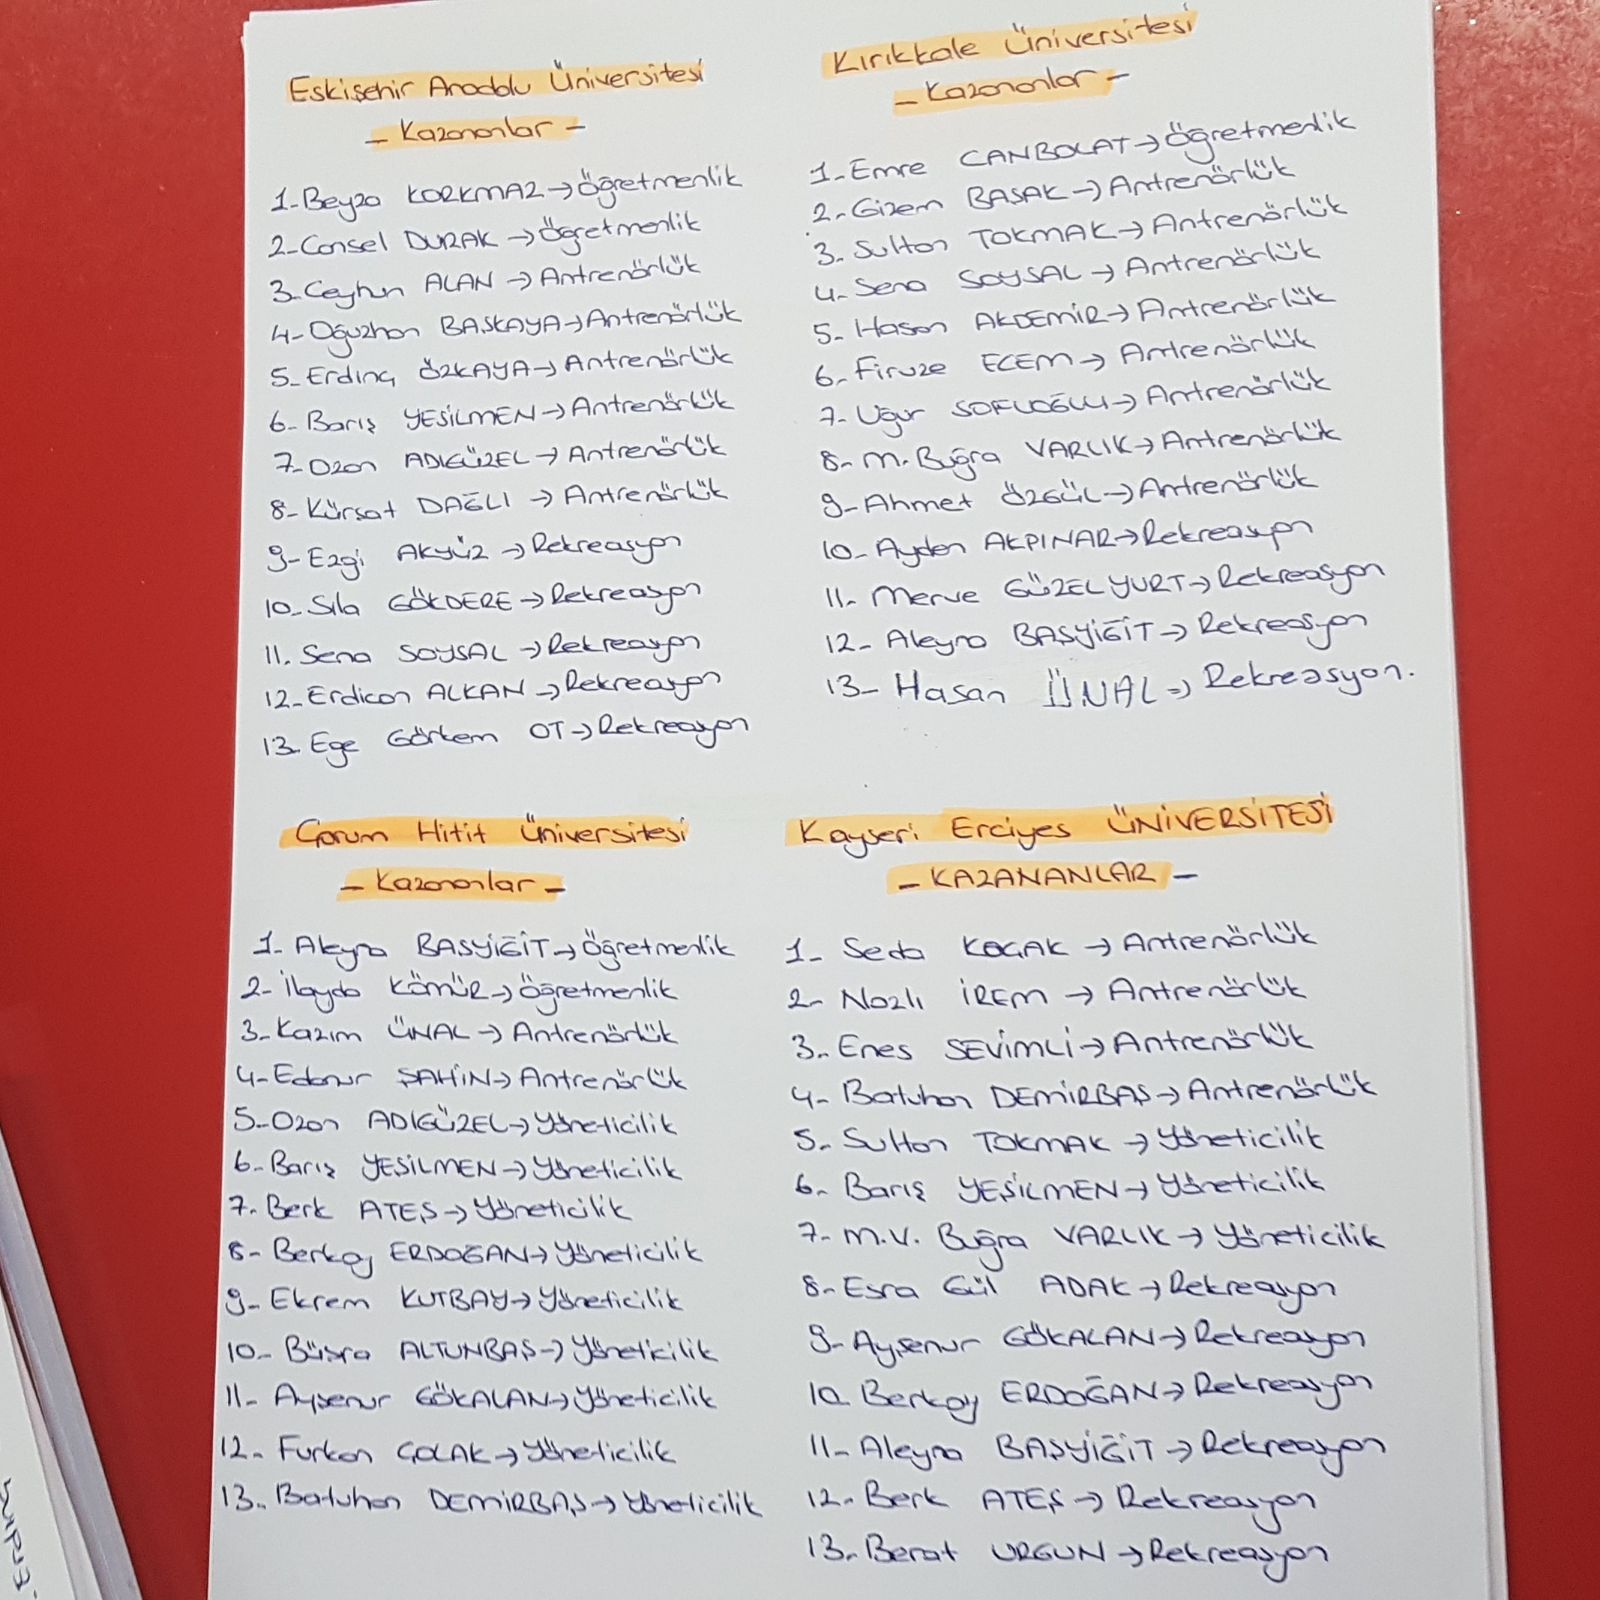 Eskişehir Anadolu Üniversitesi
- Kazananlar -
1- Beyza KORKMAZ → Öğretmenlik
2- Cansel DURAK → Öğretmenlik
3- Ceyhun ALAN → Antrenörlük
4- Oğuzhan BAŞKAYA → Antrenörlük
5- Erdinç ÖZKAYA → Antrenörlük
6- Barış YEŞİLMEN → Antrenörlük
7- Ozan ADIGÜZEL → Antrenörlük
8- Kürşat DAĞLI → Antrenörlük
9- Ezgi AKYÜZ → Rekreasyon
10- Sıla GÖKDERE → Rekreasyon
11. Sena SOYSAL → Rekreasyon
12- Erdican ALKAN → Rekreasyon
13- Ege Görkem OT → Rekreasyon
Kırıkkale Üniversitesi
- Kazananlar -
1- Emre CANBOLAT → Öğretmenlik
2- Gizem BAŞAK → Antrenörlük
3- Sultan TOKMAK → Antrenörlük
4- Sena SOYSAL → Antrenörlük
5- Hasan AKDEMİR → Antrenörlük
6- Firuze ECEM → Antrenörlük
7- Uğur SOFUOĞLU → Antrenörlük
8- M. Buğra VARLIK → Antrenörlük
9- Ahmet ÖZGÜL → Antrenörlük
10- Ayden AKPINAR → Rekreasyon
11- Merve GÜZELYURT → Rekreasyon
12- Aleyna BAŞYİĞİT → Rekreasyon
13- Hasan ÜNAL → Rekreasyon.
Çorum Hitit Üniversitesi
- Kazananlar -
1- Aleyna BAŞYİĞİT → Öğretmenlik
2- İlayda KÖMÜR → Öğretmenlik
3- Kazım ÜNAL → Antrenörlük
4- Edanur ŞAHİN → Antrenörlük
5- Ozan ADIGÜZEL → Yöneticilik
6- Barış YEŞİLMEN → Yöneticilik
7- Berk ATEŞ → Yöneticilik
8- Berkay ERDOĞAN → Yöneticilik
9- Ekrem KUTBAY → Yöneticilik
10- Büşra ALTUNBAŞ → Yöneticilik
11- Ayşenur GÖKALAN → Yöneticilik
12- Furkan ÇOLAK → Yöneticilik
13- Batuhan DEMİRBAŞ → Yöneticilik
Kayseri Erciyes ÜNİVERSİTESİ
- KAZANANLAR -
1- Seda KOÇAK → Antrenörlük
2- Nazlı İREM → Antrenörlük
3- Enes SEVİMLİ → Antrenörlük
4- Batuhan DEMİRBAŞ → Antrenörlük
5- Sultan TOKMAK → Yöneticilik
6- Barış YEŞİLMEN → Yöneticilik
7- M.V. Buğra VARLIK → Yöneticilik
8- Esra Gül ADAK → Rekreasyon
9- Ayşenur GÖKALAN → Rekreasyon
10. Berkay ERDOĞAN → Rekreasyon
11- Aleyna BAŞYİĞİT → Rekreasyon
12- Berk ATEŞ → Rekreasyon
13- Berat URGUN → Rekreasyon